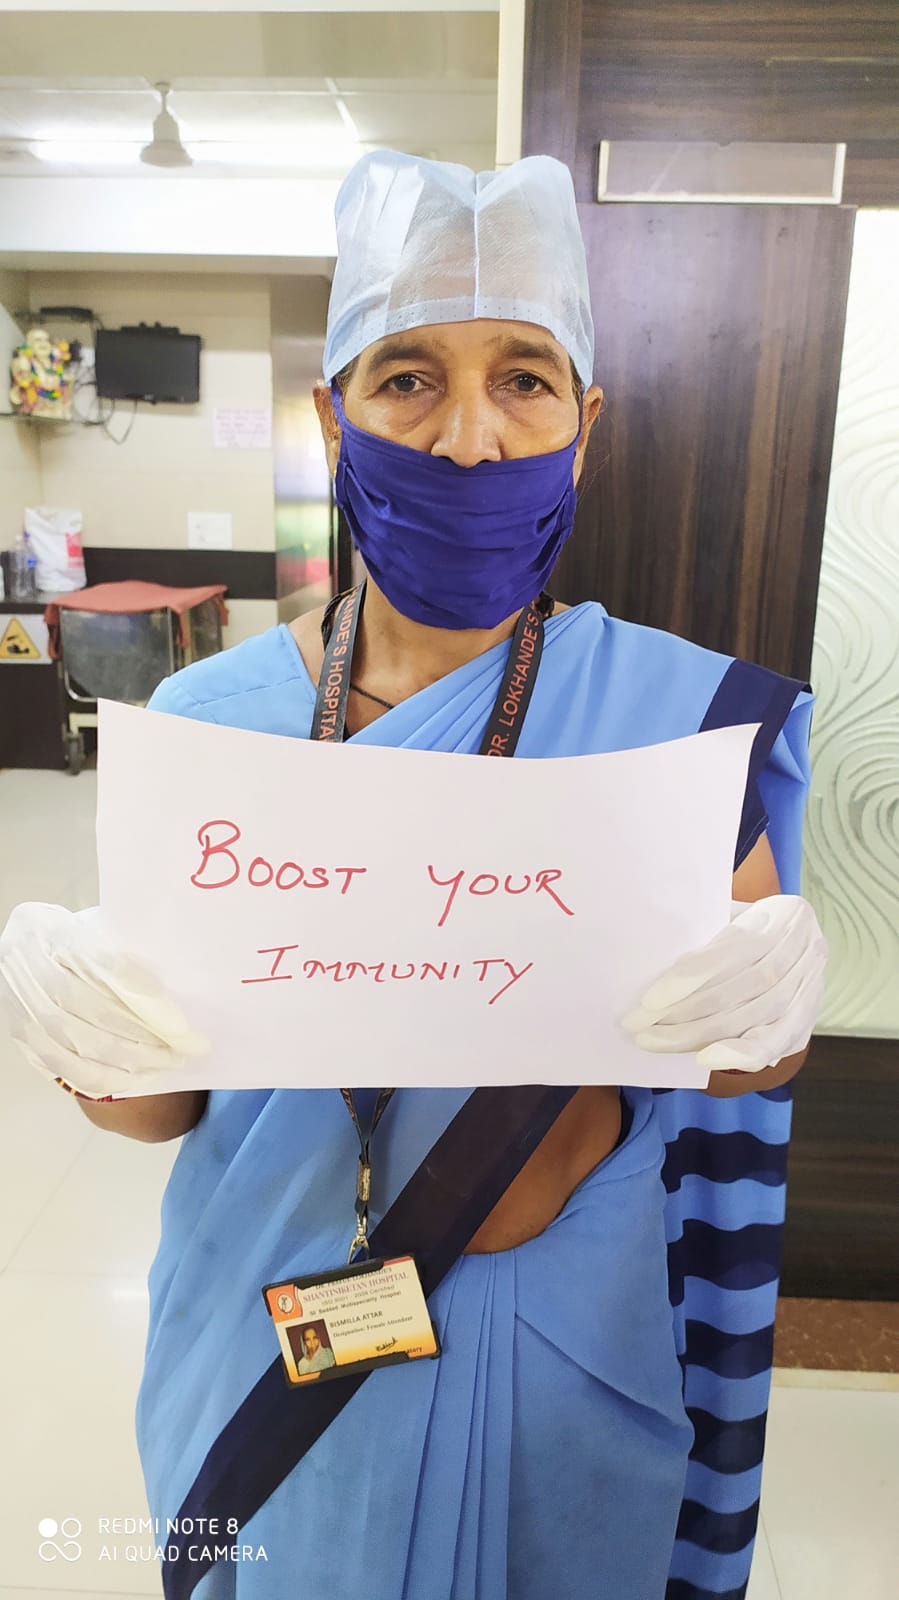 HANDE'S HOSPITA
DR. LOKHANDE'S
BOOST YOUR
IMMUNITY
SHANTINIKETAN HOSPITAL
ISO 9001 : 2008 Certified
50 Bedded Multispeciality Hospital
BISMILLA ATTAR
Designation: Female Attendant
REDMI NOTE 8
AI QUAD CAMERA